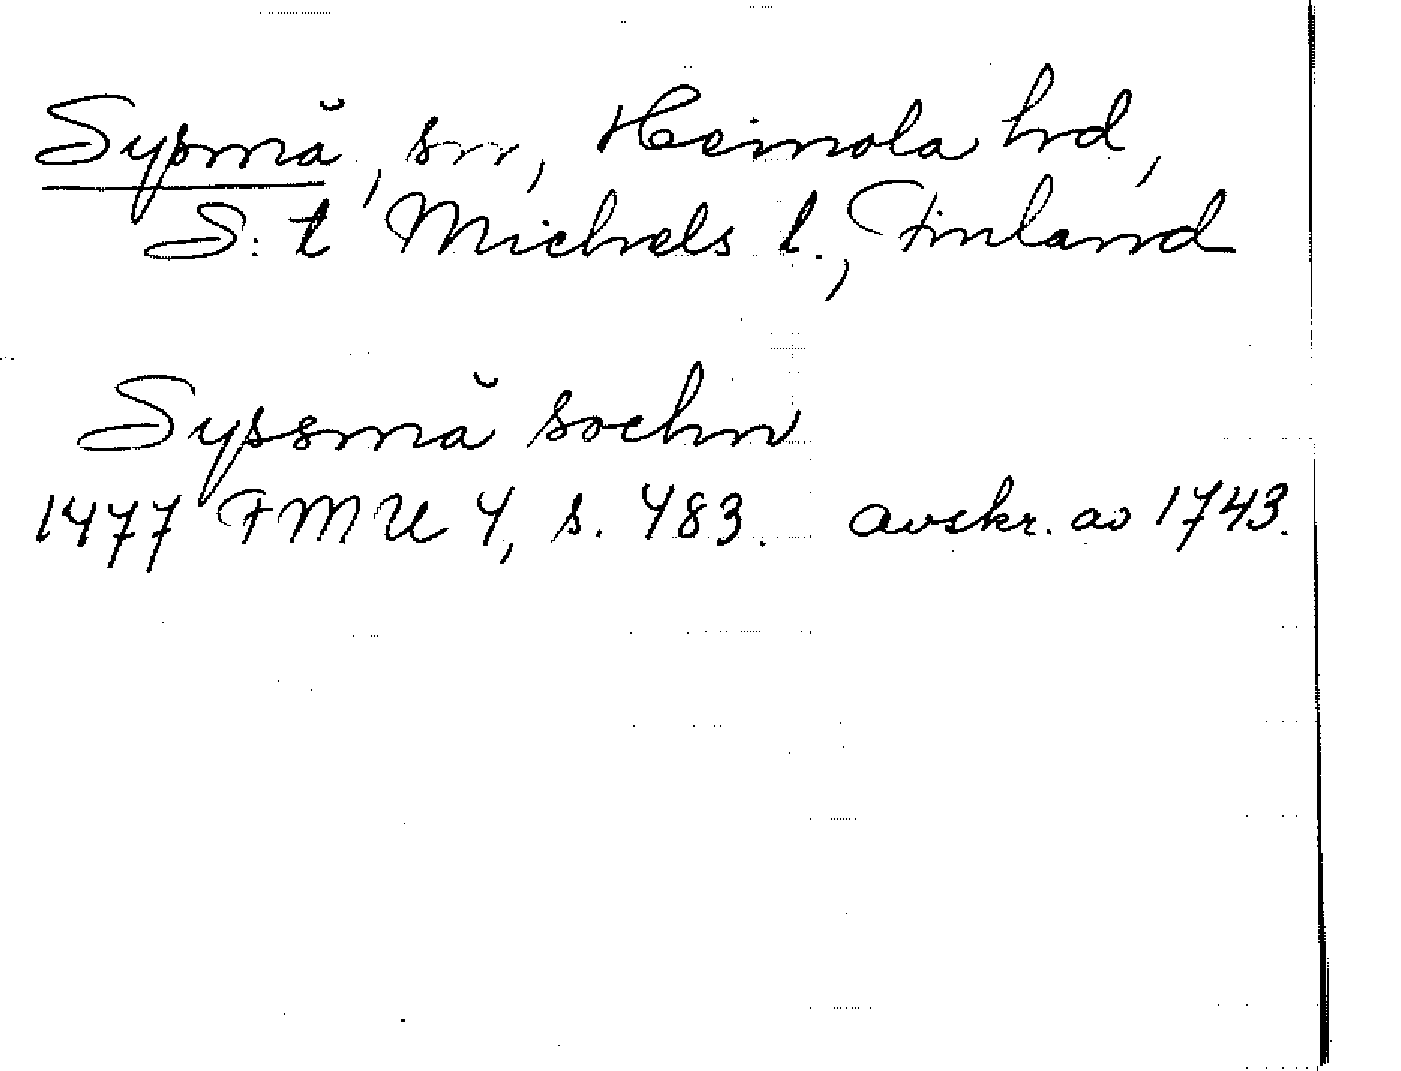 Sysmä, sn, Heinola hrd,
S:t Michels l., Finland
Syssmä sochn
1477 FMU 4, s. 483. avskr. av 1743.